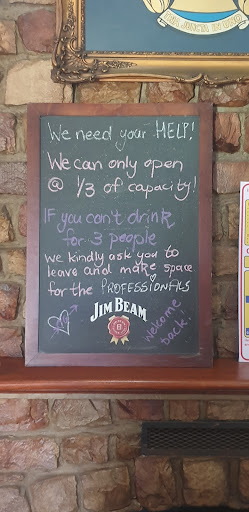 We need your HELP!
We can only open
@ 1/3 of capacity!
IF you can't drink
for 3 people
we kindly ask you to
leave and make space
for the PROFESSIONALS
JIM BEAM
B
Welcome
back!